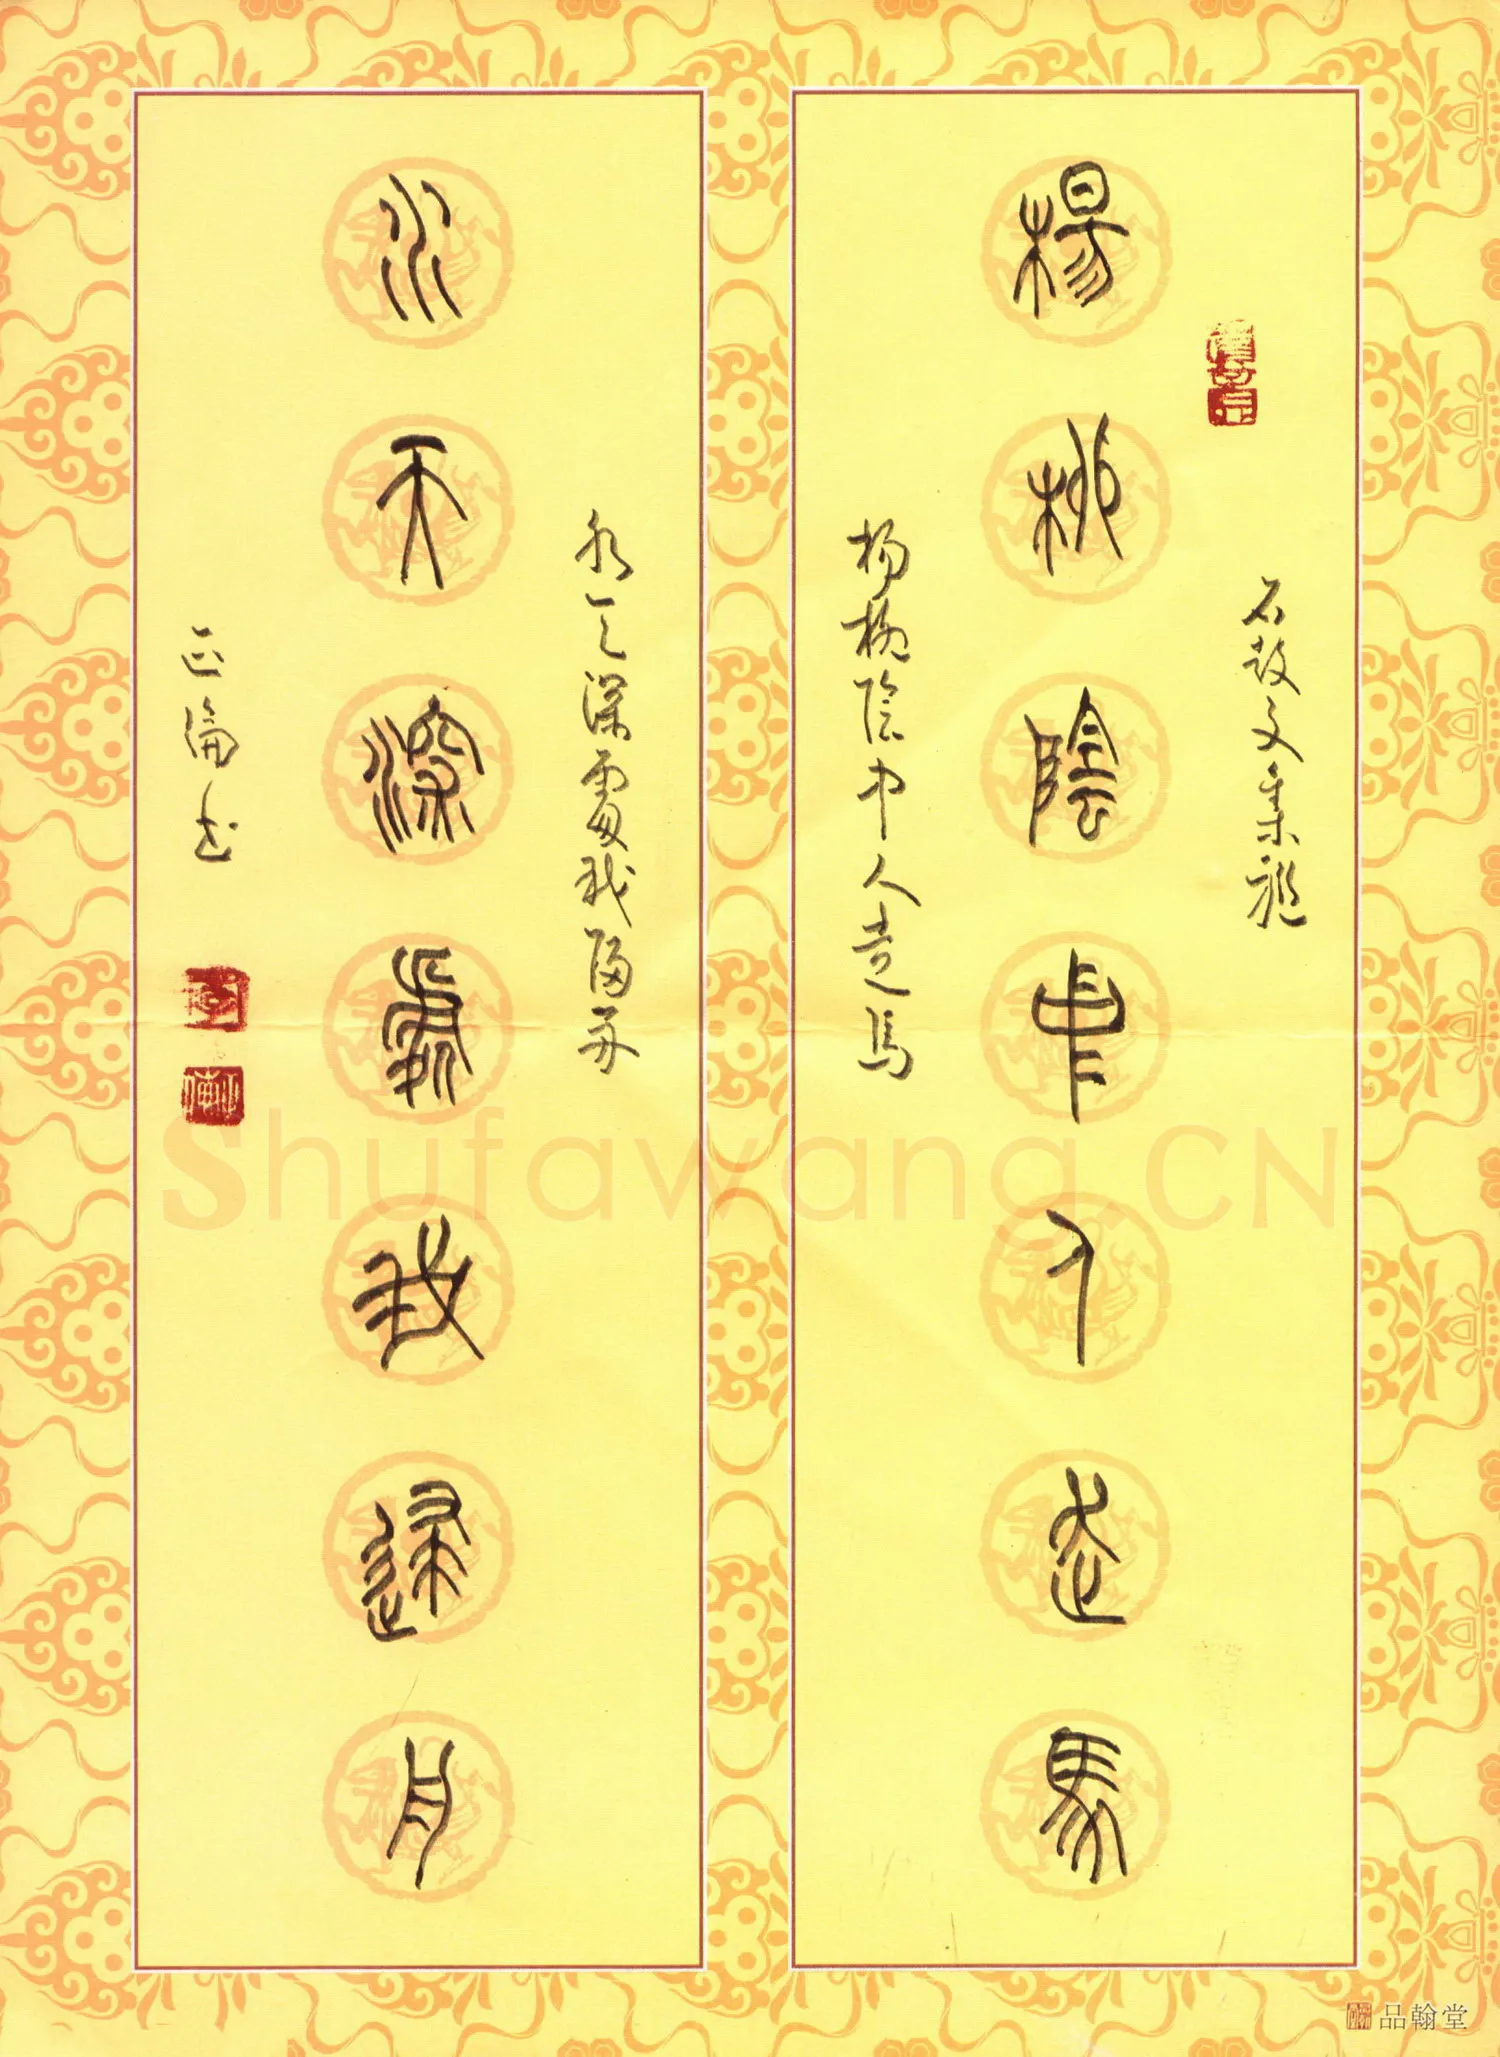 石鼓文集聯
楊柳陰中人走馬
楊柳陰中人走馬
水天深處我歸舟
水天深處我歸舟
正倫书
Shufawang.CN
品翰堂